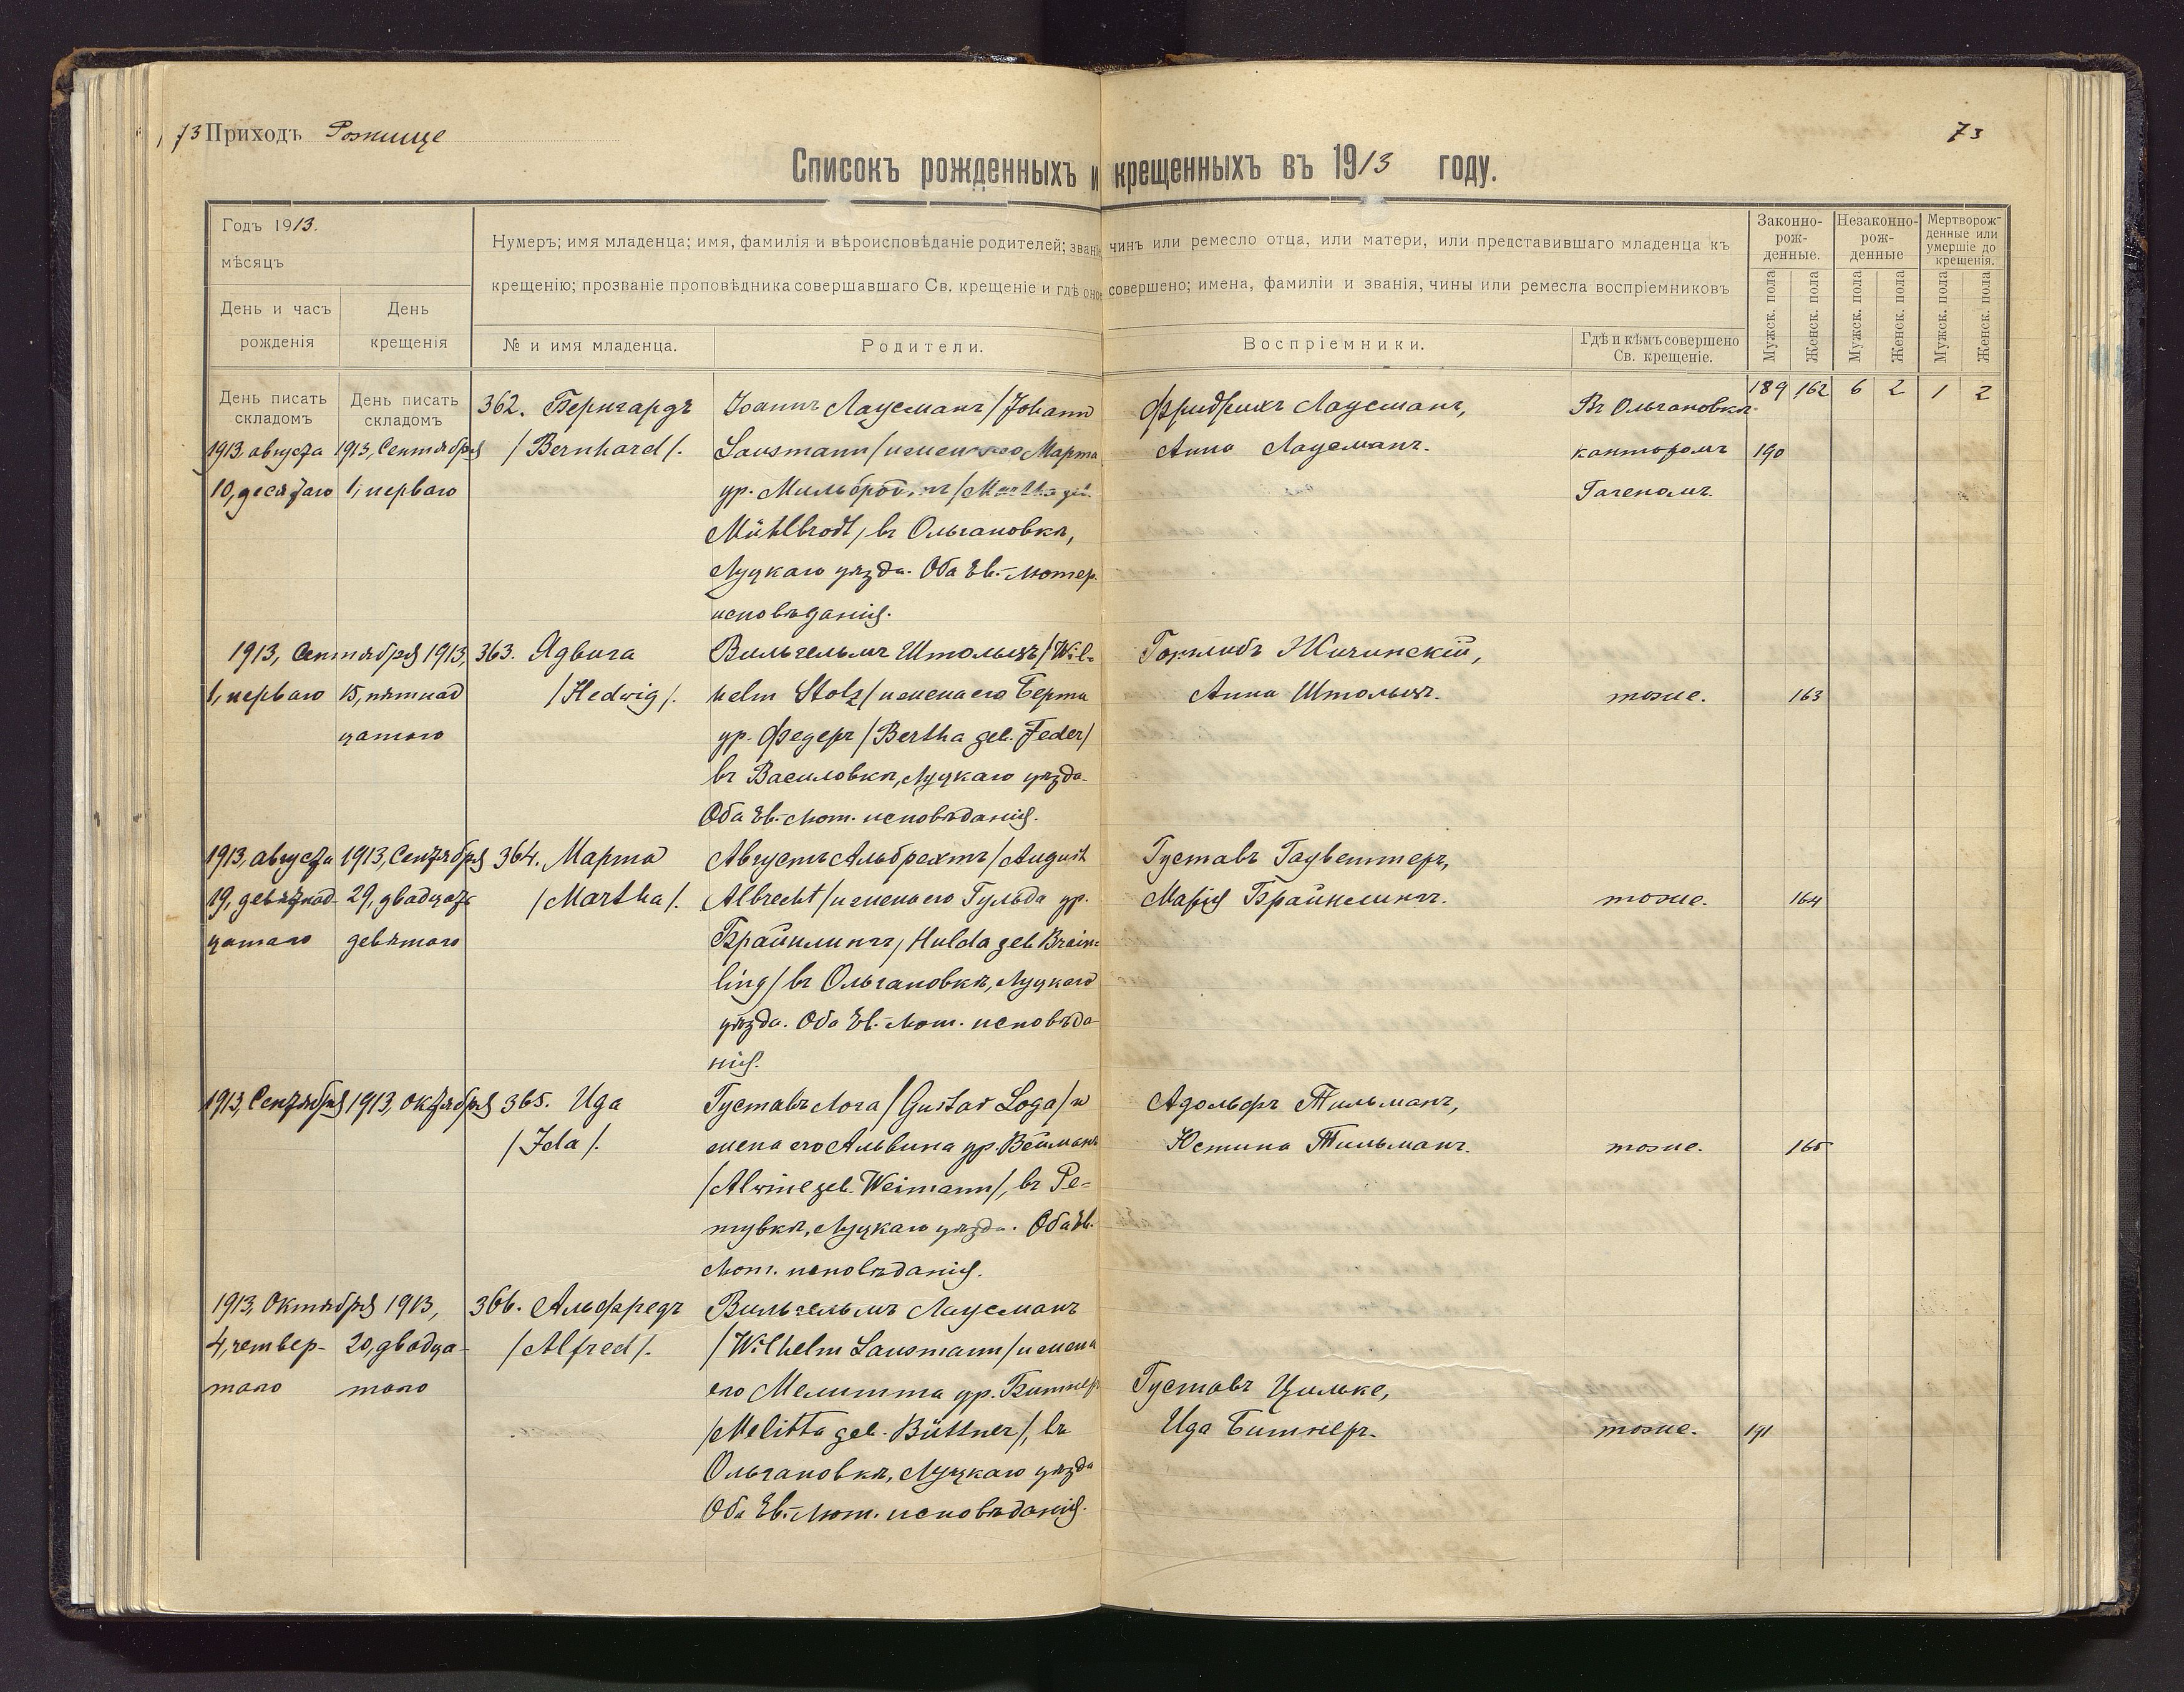 73 Приходъ Рожище
73
Списокъ рожденныхъ и крещенныхъ въ 1913 году.
Годъ 1913.
мѣсяцъ
День и часъ рожденія
День крещенія
Нумеръ; имя младенца; имя, фамилія и вѣроисповѣданіе родителей; званіе чинъ или ремесло отца, или матери, или представившаго младенца къ
крещенію; прозваніе проповѣдника совершавшаго Св. крещеніе и гдѣ оное совершено; имена, фамиліи и званія, чины или ремесла воспріемниковъ
№ и имя младенца.
Родители.
Воспріемники.
Гдѣ и кѣмъ совершено
Св. крещеніе.
Законно-
рож-
денные.
Незаконно-
рож-
денные
Мертворож-
денные или
умершіе до
крещенія.
Мужск. пола
Женск. пола
Мужск. пола
Женск. пола
Мужск. пола
Женск. пола
День писать
складомъ
День писать
складомъ
189 162 6 2 1 2
1913, августа
10, десятаго
1913, Сентября
1, перваго
362. Бернгардъ
/Bernhard/.
Іоаннъ Лаусманъ /Johann
Lausmann/ и жена его Марта
ур. Мильбродтъ /Martha geb.
Mühlbrodt/ въ Ольгановкѣ,
Луцкаго уѣзда. Оба Ев.-Лютер.
исповѣданія.
Фридрихъ Лаусманъ,
Анна Лаусманъ.
Въ Ольгановкѣ
канторомъ
Гагеномъ.
190
1913, Сентября
1, перваго
1913,
15, пятнад
цатаго
363. Ядвига
/Hedwig/.
Вильгельмъ Штольцъ /Wil-
helm Stolz/ и жена его Берта
ур. Федеръ /Bertha geb. Feder/
въ Василовкѣ, Луцкаго уѣзда.
Оба Ев.-Лют. исповѣданія.
Готлибъ Жичинскій,
Анна Штольцъ.
тоже.
163
1913, августа
19, девятнад-
цатаго
1913, Сентября
29, двадцать
девятаго
364. Марта
/Martha/.
Августъ Альбрехтъ /August
Albrecht/ и жена его Гульда ур.
Брайнлингъ /Hulda geb. Brain-
ling/ въ Ольгановкѣ, Луцкаго
уѣзда. Оба Ев.-Лют. исповѣда-
нія.
Густавъ Гаубеттеръ,
Марія Брайнлингъ.
тоже.
164
1913, Сентября
1913, октября
365. Ида
/Ida/.
Густавъ Лога /Gustav Loga/ и
жена его Альвина ур. Вейманъ
/Alwine geb. Weimann/, въ Ре-
тувкѣ, Луцкаго уѣзда. Оба Ев.
Лют. исповѣданія.
Адольфъ Тильманъ,
Юстина Тильманъ.
тоже.
165
1913, Октября
4, четвер-
таго
1913,
20, двадца-
таго
366. Альфредъ
/Alfred/.
Вильгельмъ Лаусманъ
/Wilhelm Lausmann/ и жена
его Мелитта ур. Битнеръ
/Melitta geb. Büttner/, въ
Ольгановкѣ, Луцкаго уѣзда
Оба Ев.-Лют. исповѣданія.
Густавъ Цильке,
Ида Битнеръ.
тоже.
191